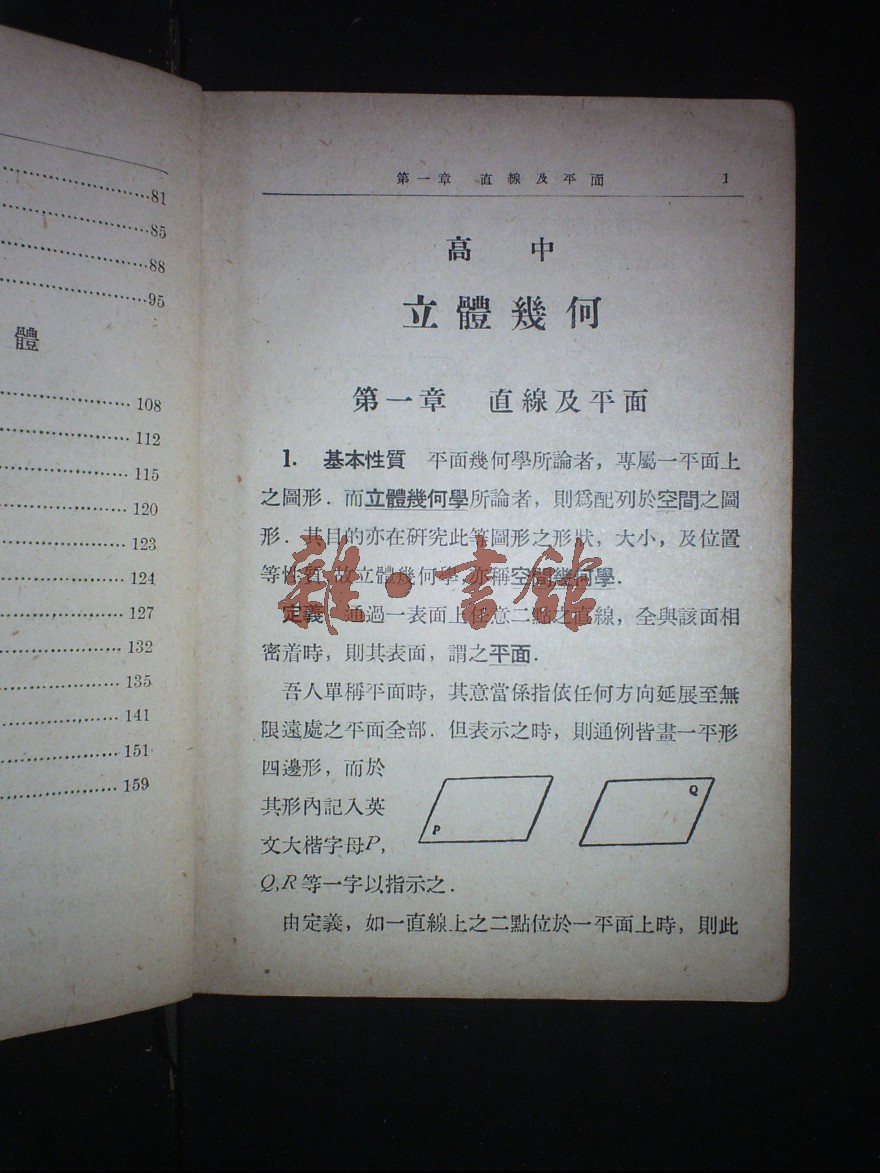 81
85
88
95
體
108
112
115
120
123
124
127
132
135
141
151
159
第一章 直線及平面 1
高中
立體幾何
第一章 直線及平面
1. 基本性質 平面幾何學所論者，專屬一平面上
之圖形．而立體幾何學所論者，則爲配列於空間之圖
形．其目的亦在研究此等圖形之形狀，大小，及位置
等性質 故立體幾何學 亦稱空間幾何學．
定義 通過一表面上任意二點之直線，全與該面相
密着時，則其表面，謂之平面．
吾人單稱平面時，其意當係指依任何方向延展至無
限遠處之平面全部．但表示之時，則通例皆畫一平形
四邊形，而於
其形內記入英
文大楷字母P，
Q,R等一字以指示之．
P
Q
由定義，如一直線上之二點位於一平面上時，則此
雜·書館